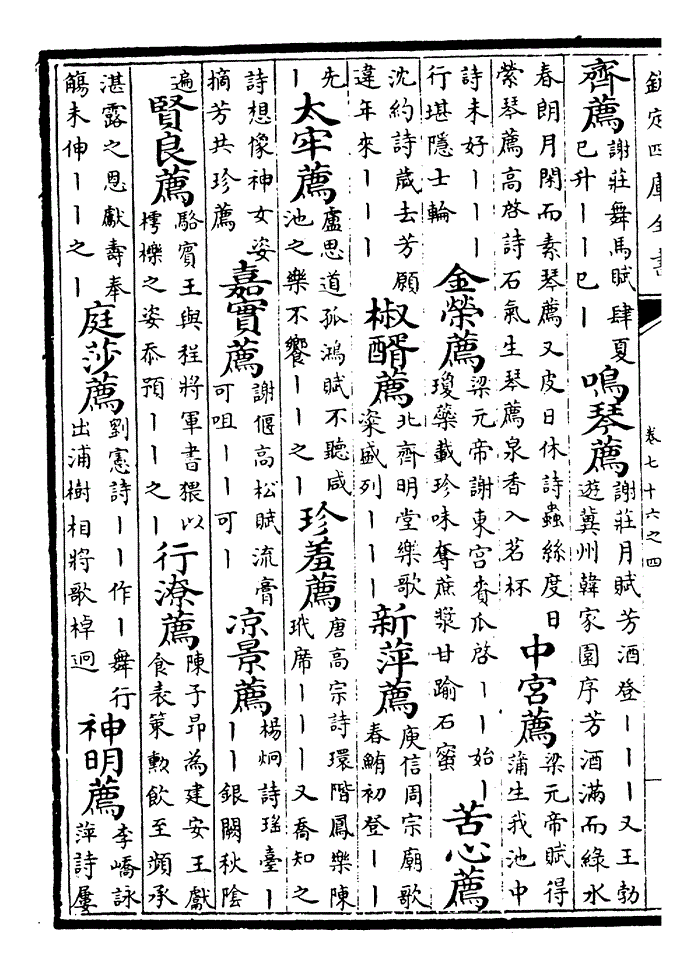 欽定四庫全書 卷七十六之四
齊薦謝莊舞馬賦肆夏已升丨丨已丨鳴琴薦謝莊月賦芳酒登丨丨丨又王勃遊冀州韓家園序芳酒滿而綠水
春朗月閑而素琴薦又皮日休詩蟲絲度日縈琴薦高啓詩石氣生琴薦泉香入茗杯中宮薦梁元帝賦得蒲生我池中
詩未好丨丨丨行堪隱士輪金榮薦梁元帝謝東宮賚瓜啓丨丨始丨瓊藥載珍味奪蔗漿甘踰石蜜苦心薦
沈約詩歲去芳願違年來丨丨丨椒醑薦北齊明堂樂歌粢盛列丨丨丨新萍薦庾信周宗廟歌春鮪初登丨丨
先丨太牢薦盧思道孤鴻賦不聽咸池之樂不饗丨丨之丨珍羞薦唐高宗詩環階鳳樂陳玳席丨丨丨又喬知之
詩想像神女姿摘芳共珍薦嘉實薦謝偃高松賦流膏可咀丨丨可丨凉景薦楊炯詩瑤臺丨丨丨銀闕秋陰
遍賢良薦駱賓王與程將軍書猥以樗櫟之姿忝預丨丨之丨行潦薦陳子昂為建安王獻食表策勲飲至頻承
湛露之恩獻壽奉觴未伸丨丨之丨庭莎薦劉憲詩丨丨作丨舞行出浦樹相將歌棹迥神明薦李嶠詠萍詩屢